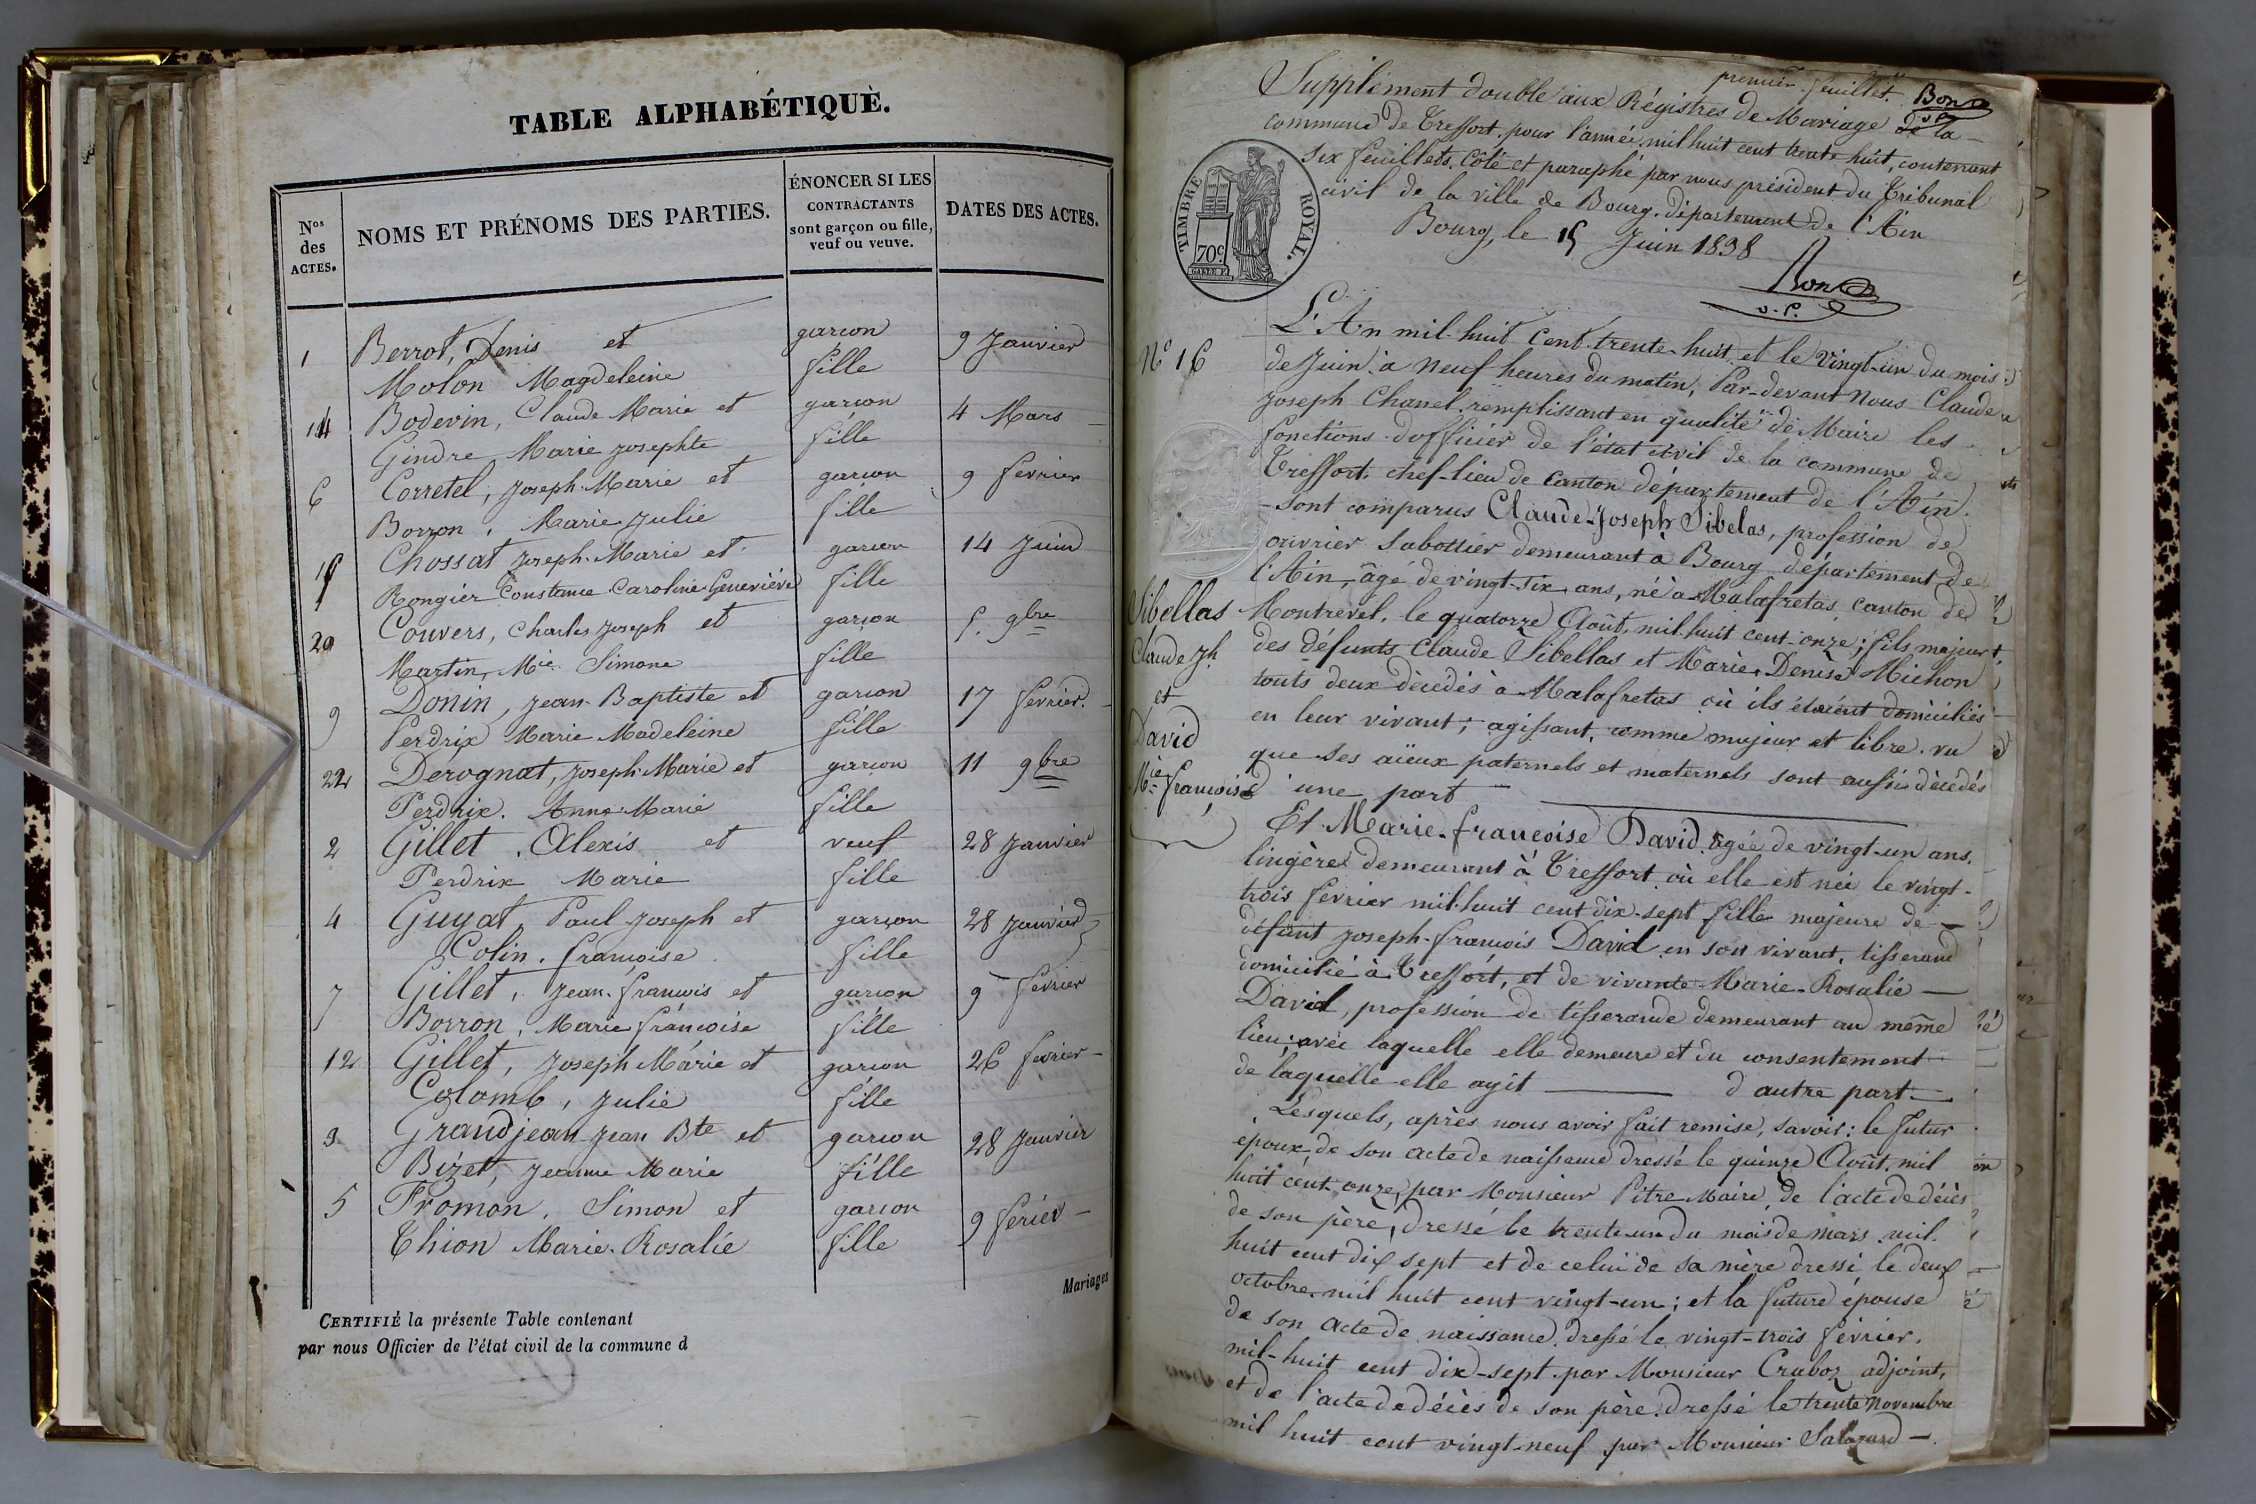 TABLE ALPHABÉTIQUE.
Nos des ACTES.
NOMS ET PRÉNOMS DES PARTIES.
ÉNONCER SI LES
CONTRACTANTS
sont garçon ou fille,
veuf ou veuve.
DATES DES ACTES.
1 Berrot, Denis et garcon 9 Janvier
Molon Magdeleine fille
14 Bodevin, Claude Marie et garcon 4 Mars
Gindre, Marie josephte fille
6 Corretel, joseph-Marie et garcon 9 fevrier
Borron, Marie julie fille
15 Chossat joseph-Marie et garcon 14 Juin
Rongier Constance Caroline Geneviève fille
20 Couvers, Charles joseph et garçon 5. 9bre
Martin, Mie Simone fille
9 Donin, jean-Baptiste et garcon 17 fevrier.
Perdrix Marie Madeleine fille
22 Derognat, joseph-Marie et garcon 11 9bre
Perdrix. Anne-Marie fille
2 Gillet. Alexis et veuf 28 Janvier
Perdrix Marie fille
4 Guyat, Paul joseph et garçon 28 Janvier
Colin. françoise fille
7 Gillet, jean-françois et garcon 9 fevrier
Borron, Marie françoise fille
12 Gillet, joseph Marie et garcon 26 fevrier
Colomb, julie fille
3 Grandjean jean Bte et garcon 28 Janvier
Bizet, jeanne Marie fille
5 Fromon. Simon et garcon 9 férier
Thion Marie-Rosalie fille
Mariages
CERTIFIÉ la présente Table contenant
par nous Officier de l'état civil de la commune d
premier feuillet. Bon
Supplément double aux Régistres de Mariage de la
commune de Treffort, pour l'année mil huit cent trente huit, contenant
six feuillets, côté et paraphé par nous président du Tribunal
civil de la ville de Bourg, département de l'Ain
Bourg, le 15 Juin 1838
Bon
v. P.
TIMBRE ROYAL.
70c.
L'An mil-huit Cent-trente-huit et le vingt-un du mois
No 16
de Juin à neuf heures du matin, Par-devant Nous Claude
joseph Chanel remplissant en qualité de Maire les
fonctions d'officier de l'état civil de la commune de
Treffort, chef-lieu de Canton département de l'Ain.
sont comparus Claude-joseph Sibelas, profession de
ouvrier sabottier demeurant à Bourg département de
l'Ain, âgé de vingt-six ans, né à Malafretas canton de
Sibellas
Claude jh
et
David
Mie françoise
Montrevel, le quatorze Août, mil huit cent onze; fils majeur
des défunts Claude Sibellas et Marie Denise Michon
touts deux dècedés à Malafretas où ils étaient domiciliés
en leur vivant; agissant, comme majeur et libre. vu
que ses aïeux paternels et maternels sont aussi dècédés
d'une part
Et Marie-françoise David agée de vingt-un ans,
lingère demeurant à Treffort où elle est née le vingt-
trois fevrier mil-huit cent dix-sept fille majeure de
défunt joseph-françois David en son vivant, tisserand
domicilié à Treffort, et de vivante Marie-Rosalie
David, profession de tisserande demeurant au même
lieu; avèc laquelle elle demeure et du consentement
de laquelle elle agit d'autre part.
Lesquels, après nous avoir fait remise, savoir: le futur
époux de son acte de naissance dressé le quinze Août, mil
huit cent onze, par Monsieur Pitre Maire, de l'acte de décès
de son père, dressé le trente-un du mois de mars mil
huit cent dix sept et de celui de sa mère dressé le deux
octobre mil huit cent vingt-un; et la future épouse
de son acte de naissance dressé le vingt-trois fevrier,
mil-huit cent dix-sept par Monsieur Craboz adjoint,
et de l'acte de décès de son père. dressé le trente Novembre
mil huit cent vingt-neuf par Monsieur Salazard